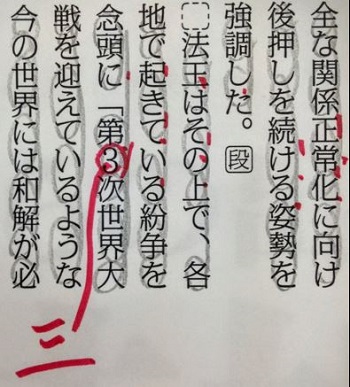 全な関係正常化に向け
後押しを続ける姿勢を
強調した。段
法王はその上で、各
地で起きている紛争を
念頭に「第3次世界大
戦を迎えているような
今の世界には和解が必
三